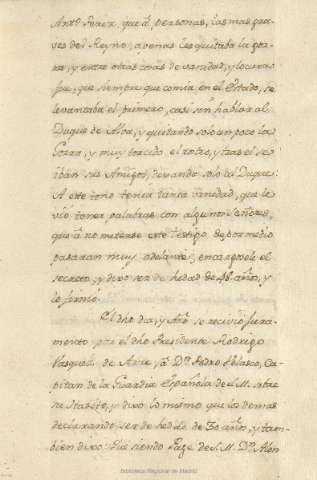 Antº. Perez, que á personas, las mas gra-
ves del Reyno, apenas les quitaba la gor-
ra, y entre otras cosas de vanidad, y locura
fue, que siempre que comia en el Estado, se
levantaba el primero, casi sin hablar al
Duque de Alva, y quitando solo un poco la
Gorra, y muy torcido el rostro, y tras el se
iban sus Amigos, dexando solo al Duque:
A este tono tenia tanta vanidad, que le
vió tener palabras con algunos Señores,
que á no meterse este testigo de por medio
pasaran muy adelante; encargosele el
secreto, y dixo ser de hedad de 48 años, y
lo firmó
El dho dia, y Año se recivió jura-
mento por el dho Presidente Rodrigo
Vazquez de Arze, á Dn. Pedro Velasco, Ca-
pitan de la Guardia Española de S. M. sobre
su Habito, y dixo lo mismo que los demas
declarando ser de hedad de 30 años, y tam-
bien dixo: Que siendo Page de S. M. Dn. Alon
Biblioteca Regional de Madrid